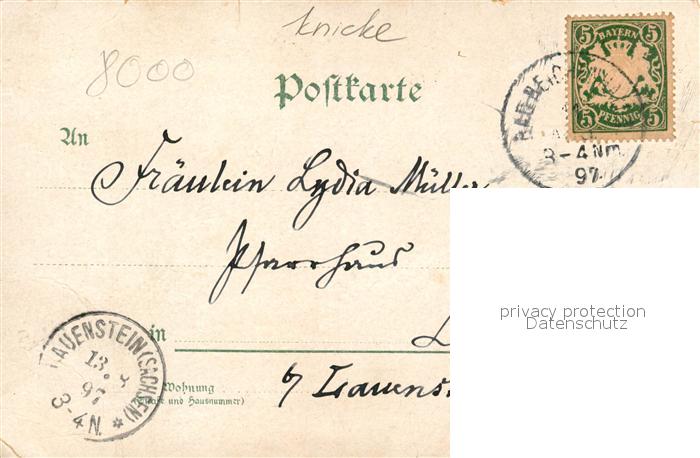 knicke
8000
Postkarte
5 BAYERN 5
5 PFENNIG 5
3-4 Nm.
97.
An
Fräulein Lydia Müller
Pfarrhaus
in L
b/ Lauens
Wohnung
(Straße und Hausnummer)
LAUENSTEIN (SACHSEN)
13. 8
97
3-4N.
privacy protection
Datenschutz